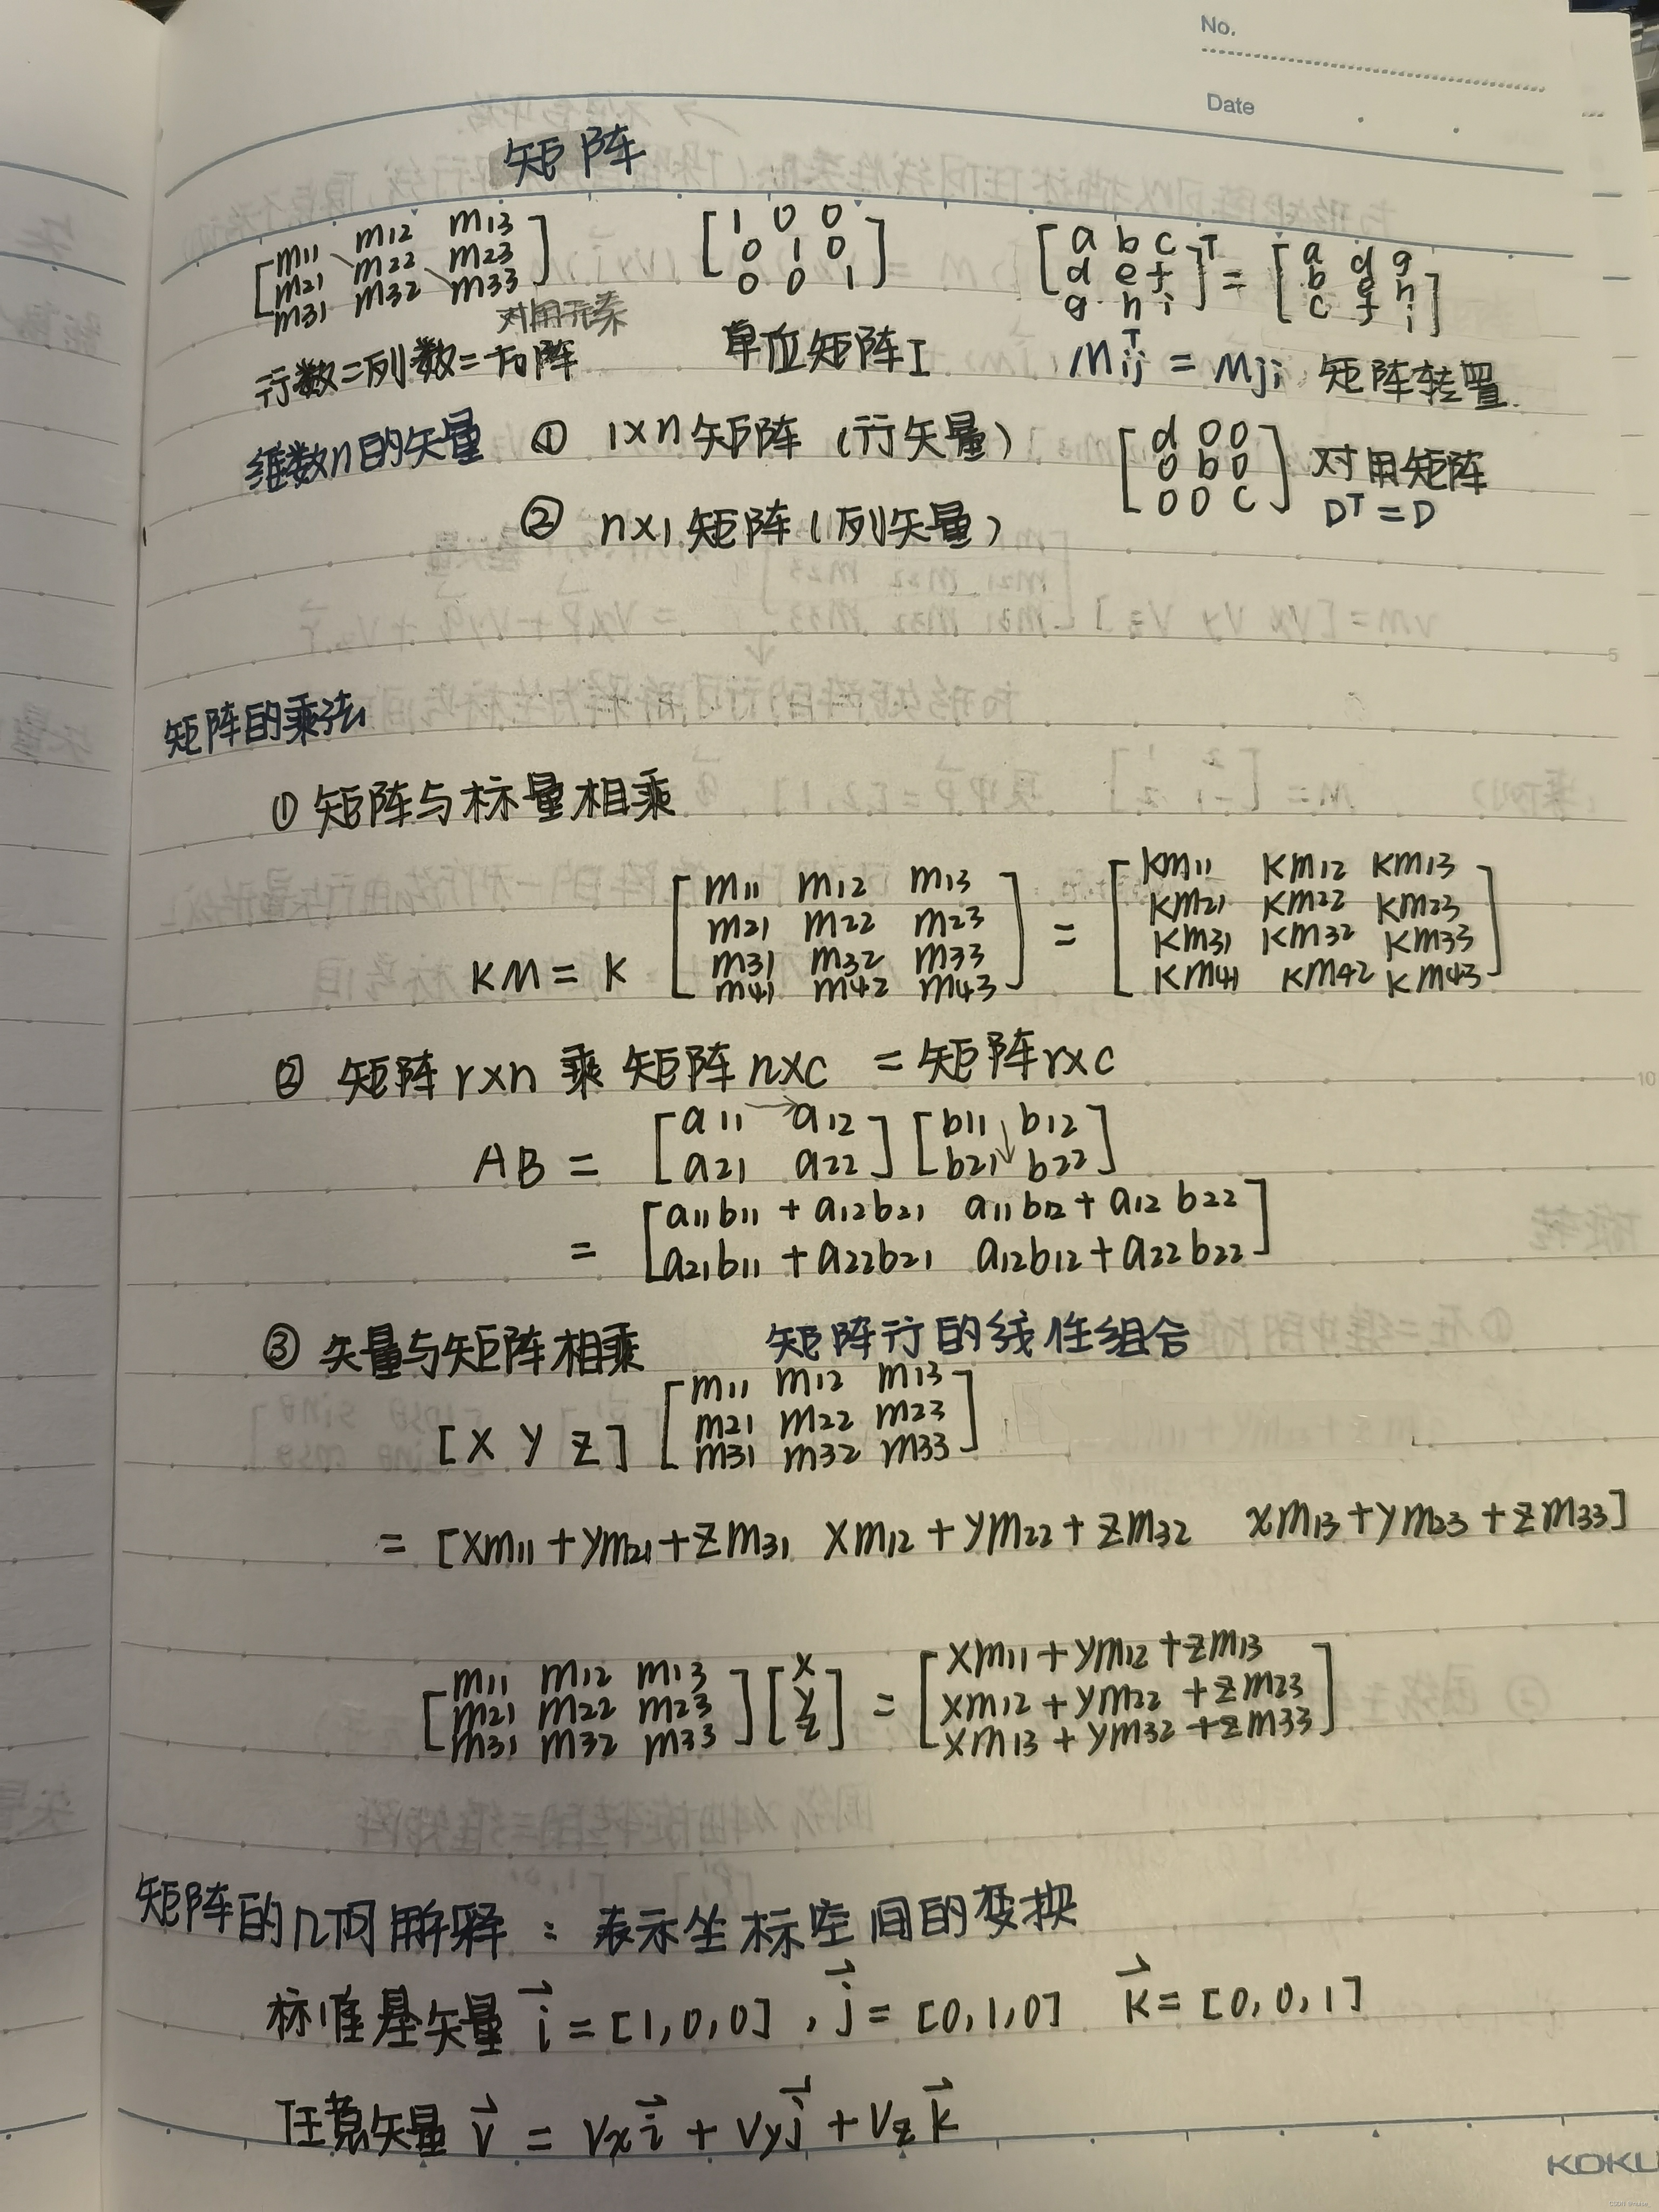 No.
Date
矩阵
[m11 m12 m13
m21 m22 m23
m31 m32 m33]
[1 0 0
0 1 0
0 0 1]
[a b c
d e f
g h i]ᵀ = [a d g
b e h
c f i]
对角元素
行数=列数=方阵
单位矩阵I
Mᵀij = Mji 矩阵转置
维数n的矢量 ① 1×n矩阵 (行矢量)
② n×1矩阵 (列矢量)
[d 0 0
0 b 0
0 0 c] 对角矩阵
Dᵀ = D
矩阵的乘法
① 矩阵与标量相乘
KM = K [m11 m12 m13
m21 m22 m23
m31 m32 m33
m41 m42 m43] = [Km11 Km12 Km13
Km21 Km22 Km23
Km31 Km32 Km33
Km41 Km42 Km43]
② 矩阵r×n 乘 矩阵n×c = 矩阵r×c
AB = [a11 → a12
a21 a22] [b11 ↓ b12
b21 b22]
= [a11b11 + a12b21 a11b12 + a12b22
a21b11 + a22b21 a12b12 + a22b22]
③ 矢量与矩阵相乘 矩阵行的线性组合
[x y z] [m11 m12 m13
m21 m22 m23
m31 m32 m33]
= [xm11 + ym21 + zm31 xm12 + ym22 + zm32 xm13 + ym23 + zm33]
[m11 m12 m13
m21 m22 m23
m31 m32 m33] [x
y
z] = [xm11 + ym12 + zm13
xm12 + ym22 + zm23
xm13 + ym32 + zm33]
矩阵的几何解释：表示坐标空间的变换
标准基矢量 i⃗ = [1,0,0] , j⃗ = [0,1,0] k⃗ = [0,0,1]
任意矢量 v⃗ = Vx i⃗ + Vy j⃗ + Vz k⃗
5
10
KOKU